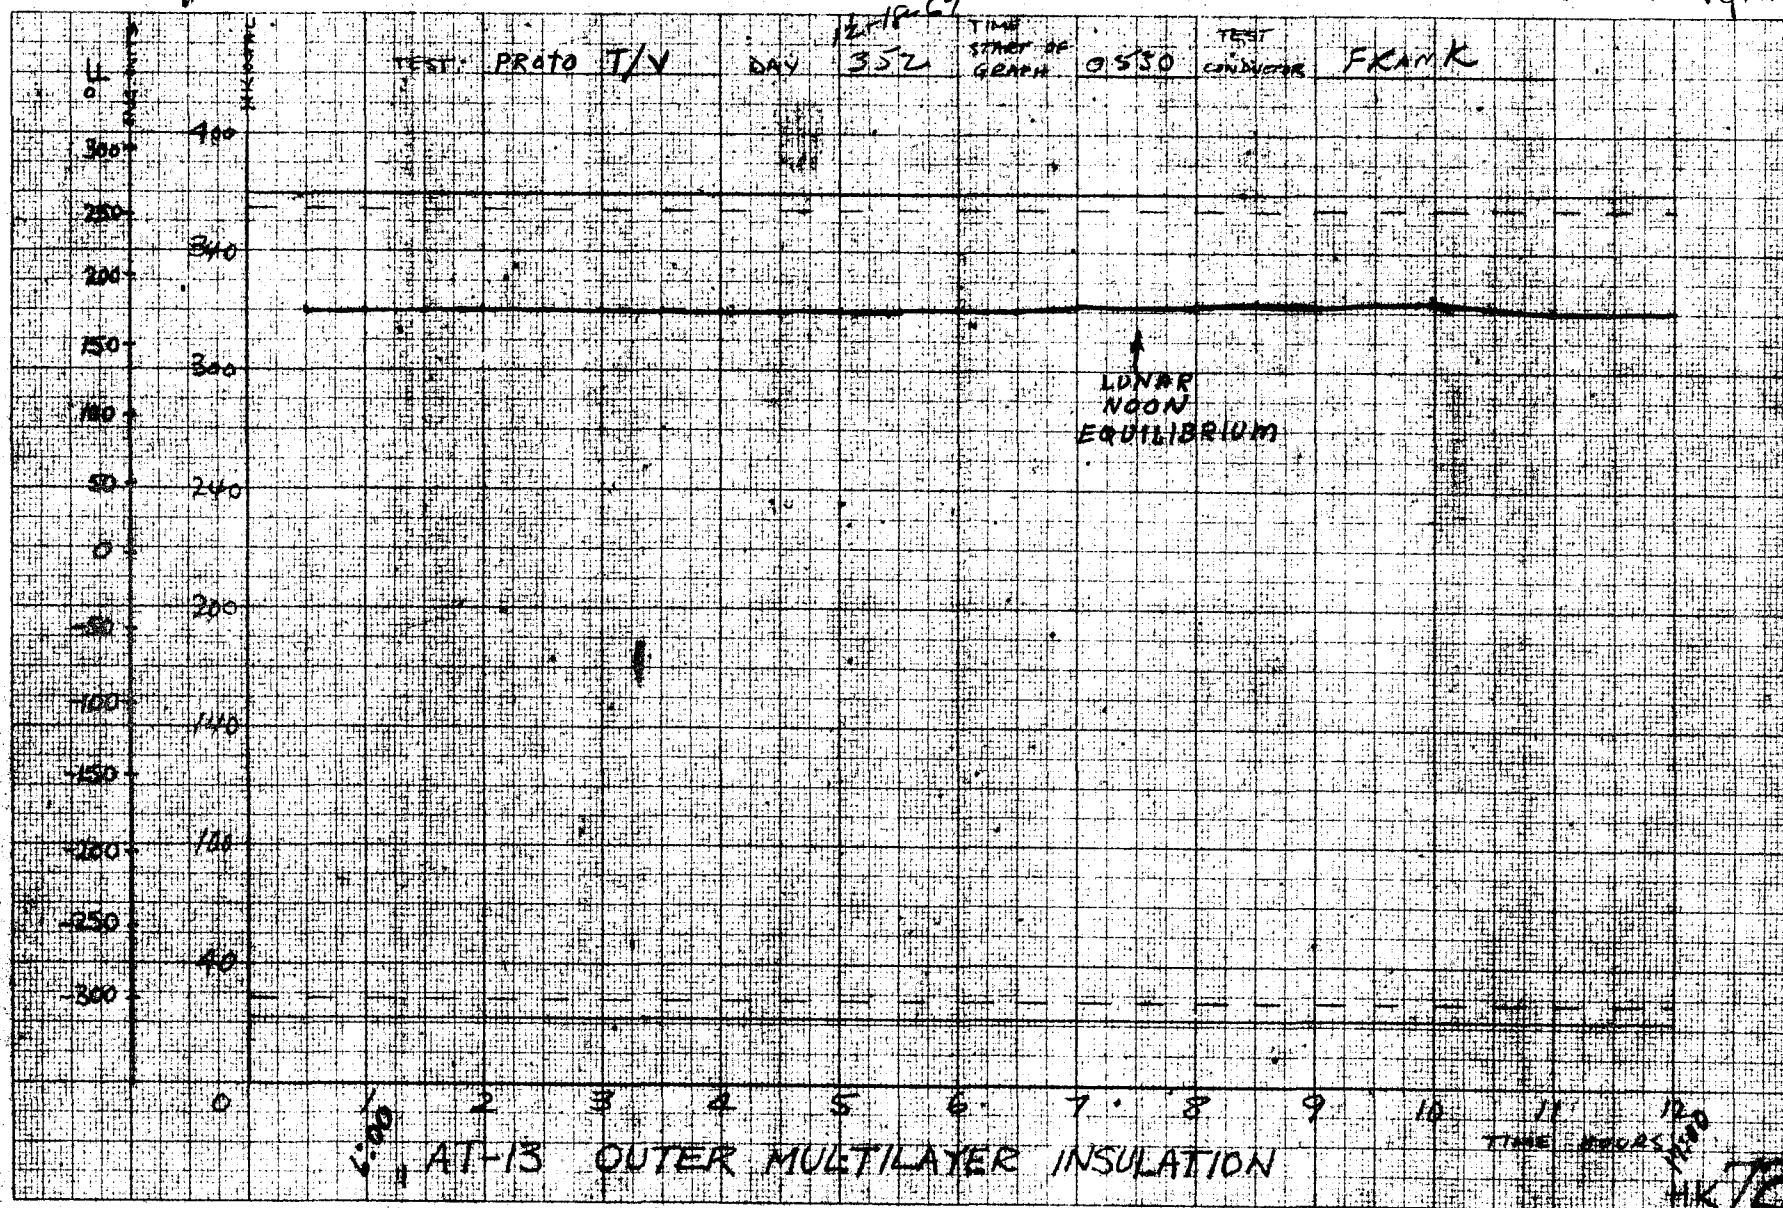 12-18-67
TEST: PROTO T/V DAY 352 TIME START OF GRAPH 0530 TEST CONDUCTOR FRANK
°F
300
250
200
150
100
50
0
-50
-100
-150
-200
-250
-300
400
340
300
240
200
140
100
40
LUNAR
NOON
EQUILIBRIUM
0 1 2 3 4 5 6 7 8 9 10 11 12
6:00
TIME HOURS
AT-13 OUTER MULTILAYER INSULATION
HK